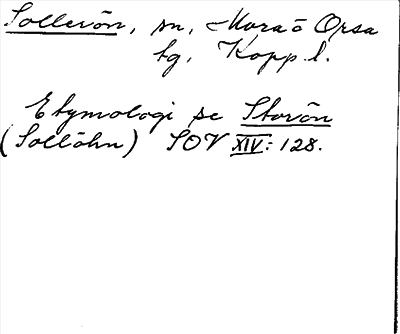 Sollerön, sn, Mora o Orsa
tg, Kopp l.
Etymologi se Storön
(Sollöhn) SOV XIV: 128.